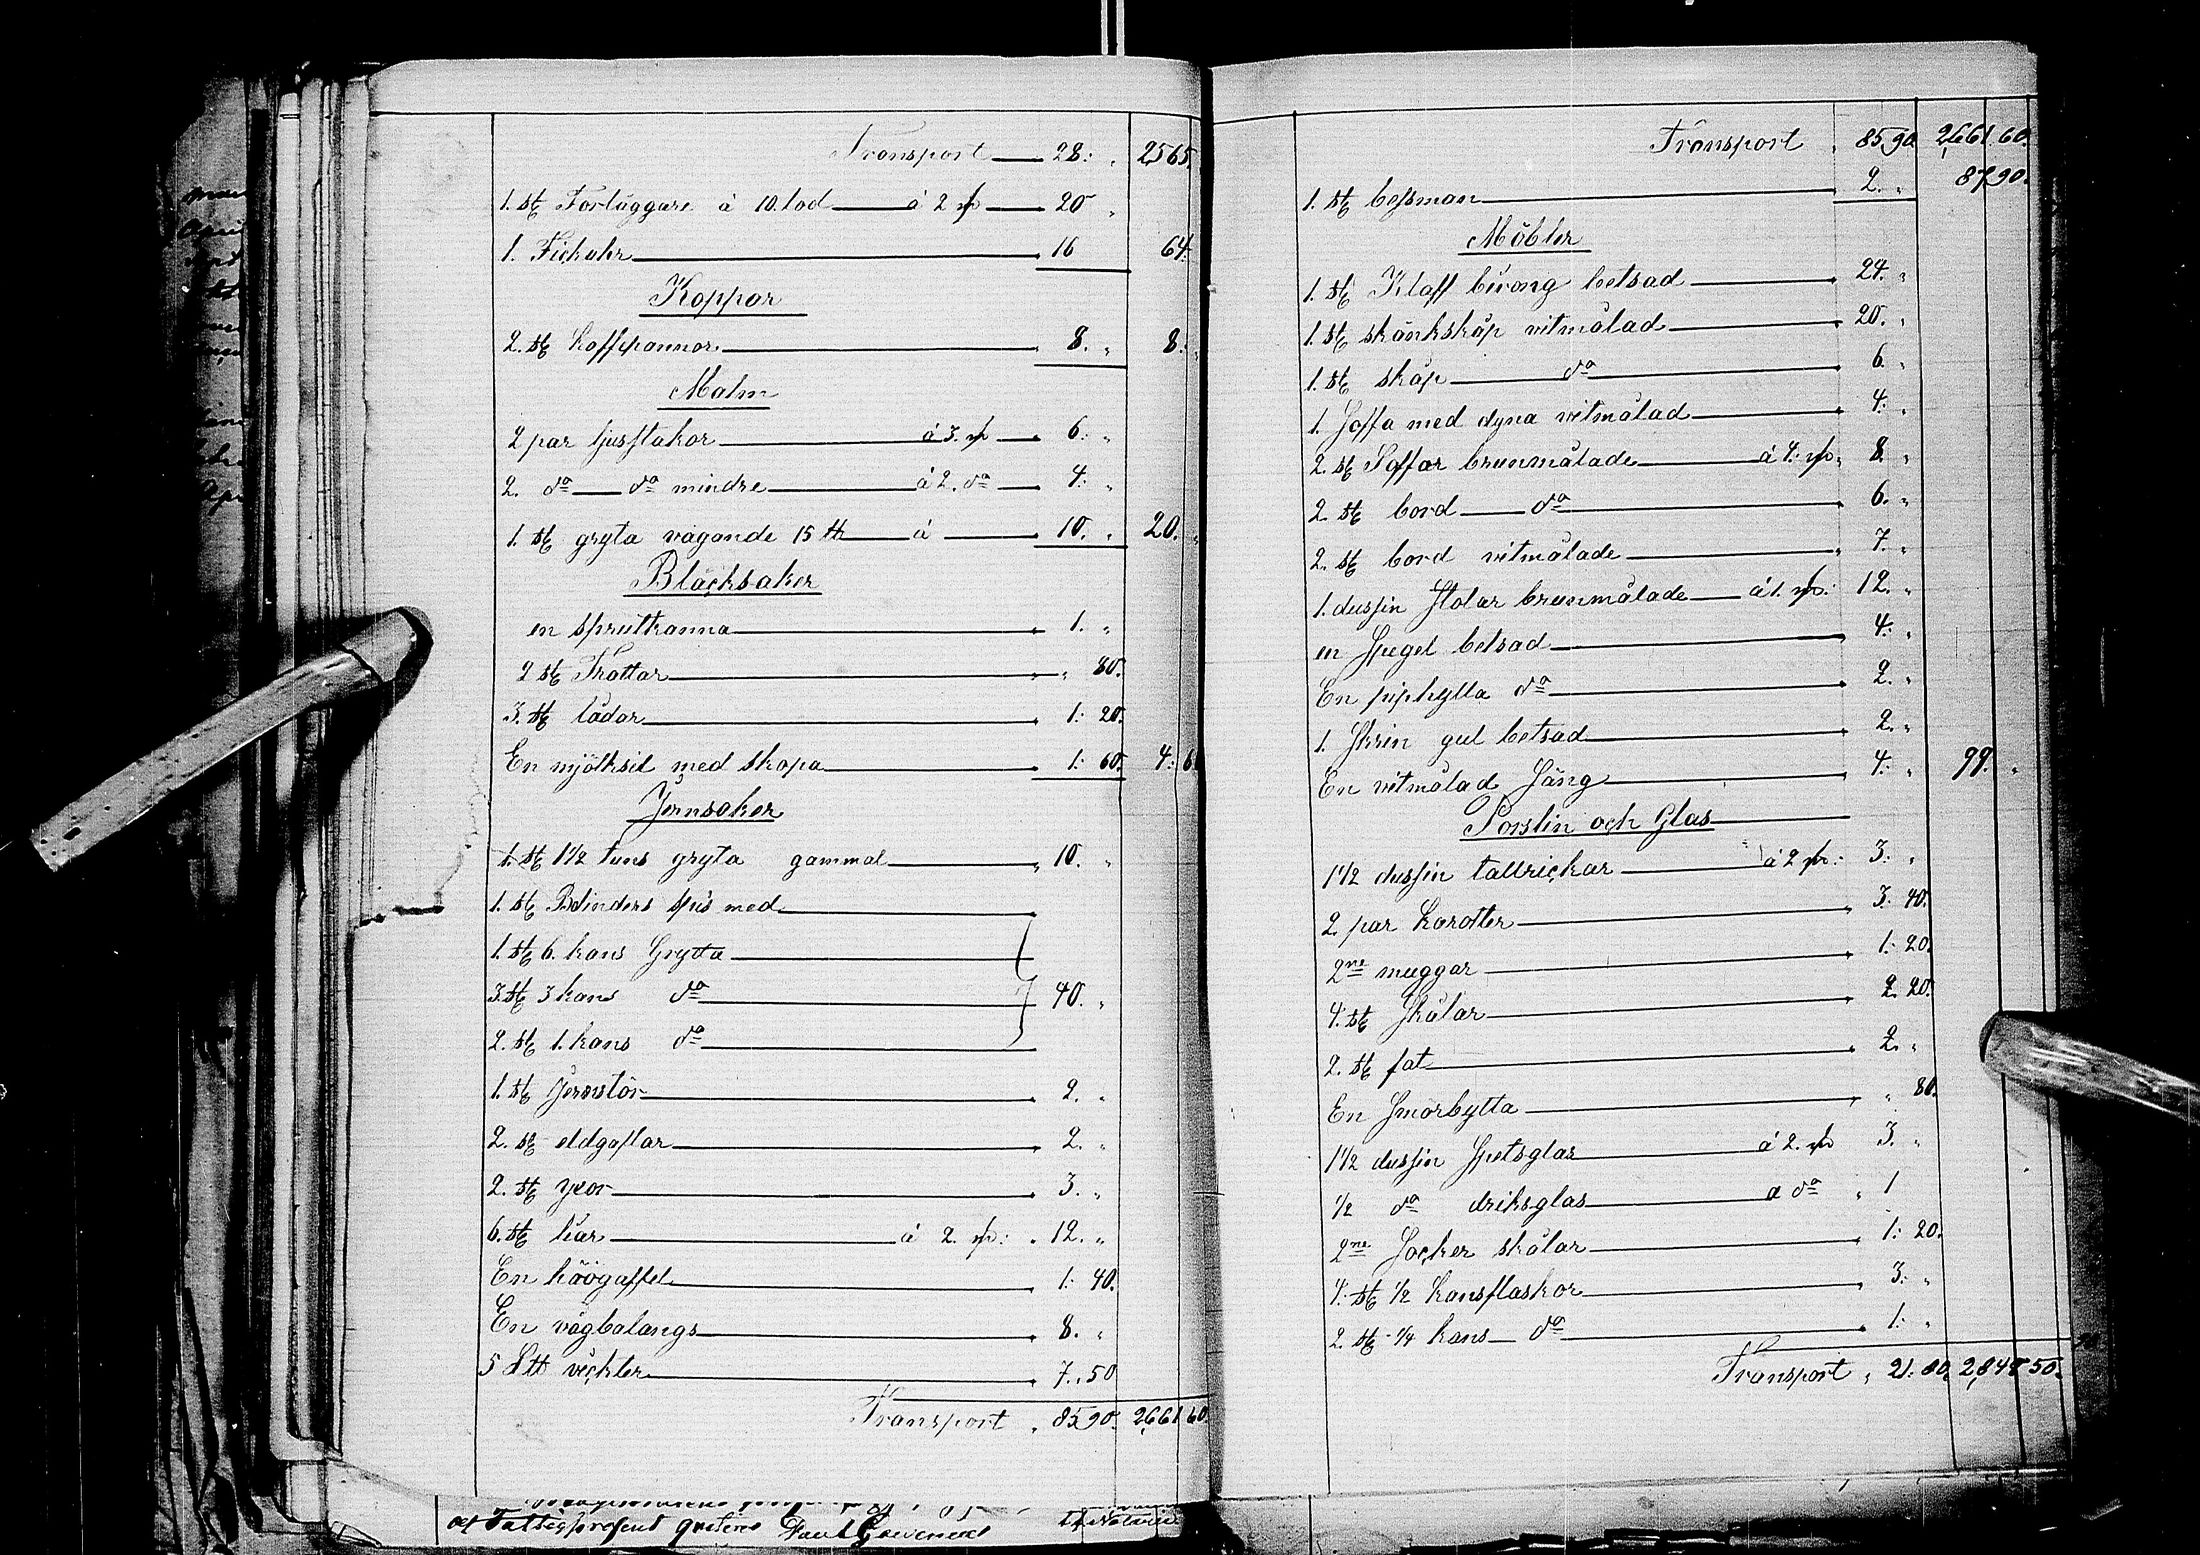 Transport 28: „ 2565
1. st Forläggare á 10. lod á 2 20 „
1. Fickuhr 16 64:
Koppar
2. st koffepannor 8. „ 8: „
Malm
2 par ljusstakar á 3. 6: „
2. do do mindre á 2. do 4: „
1. st gryta vägande 15 á 10. „ 20. „
Bläcksaker
en sprutkanna 1. „
2 st Trattar „ 80.
3. st lådor 1: 20.
En mjölksil med skopa 1: 60. 4: 6
Jernsaker
1. st 1 1/2 tuns gryta gammal 10. „
1. st Bolinders spis med
1. st 6. kans Grytta
3. st 3 kans do 40. „
2. st 1. kans do
1. st Jernstör 2. „
2. st eldgaflar 2. „
2. st yxor 3. „
6. st liar á 2. 12. „
En höögaffel 1: 40.
En vågbalangs 8. „
5 vickter 7. 50
Transport 85 90. 2,661 60.
Transport 85 90 2,661. 60.
1. st bessman 2. „ 87 90.
Möbler
1. st Klaff birong betsad 24. „
1. st skänkskåp vitmålad 20. „
1. st skåp do 6. „
1. Soffa med dyna vitmålad 4: „
2. st Soffor brunmålade á 4: 8. „
2. st bord do 6. „
2. st bord vitmålade 7. „
1. dussin Stolar brunmålade á 1. 12. „
en Spegel betsad 4: „
En piphylla do 2. „
1. Skrin gul betsad 2. „
En vitmålad Säng 4: „ 99. „
Porslin och Glas
1 1/2 dussin tallrickar á 2 3: „
2. par karotter 3: 40.
2ne muggar 1: 20.
4. st Skålar 2. 20.
2. st fat 2. „
En Smörbytta „ 80.
1 1/2 dussin Spetsglas á 2. 3. „
1/2 do driksglas a do „ 1
2ne Socker skålar 1: 20.
4: st 1/2 kansflaskor 3: „
2. st 1/4 kans do 1: „
Transport 21: 80. 2,848 50.